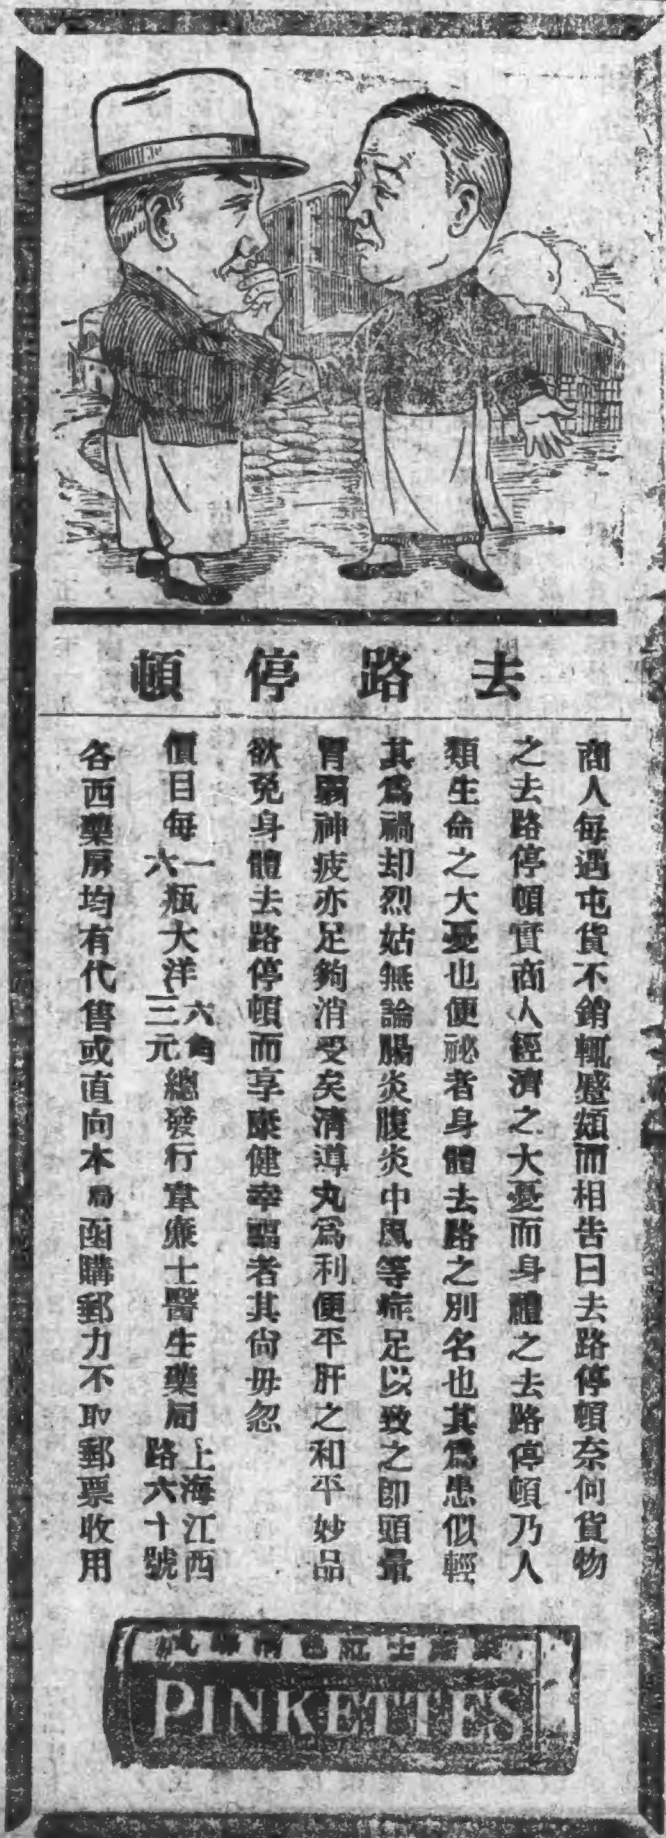 去路停頓
商人每遇屯貨不銷輒蹙頞而相告曰去路停頓奈何貨物
之去路停頓實商人經濟之大憂而身體之去路停頓乃人
類生命之大憂也便祕者身體去路之別名也其爲患似輕
其爲禍却烈姑無論腸炎腹炎中風等症足以致之即頭暈
胃弱神疲亦足夠消受矣清導丸爲利便平肝之和平妙品
欲免身體去路停頓而享康健幸福者其尙毋忽
價目每一瓶大洋六角六瓶大洋三元總發行韋廉士醫生藥局上海江西路六十號
各西藥房均有代售或直向本局函購郵力不取郵票收用
韋廉士紅色清導丸
PINKETTES